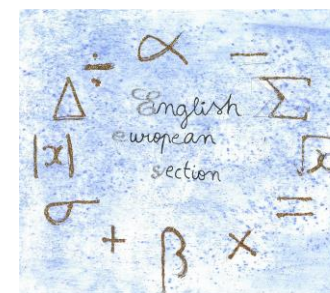 ÷ α −
Δ English Σ
|x| european √x
section
σ =
+ β ×